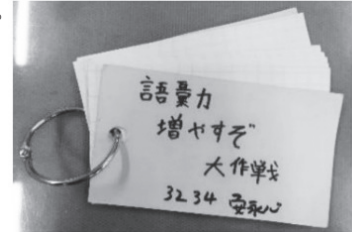 語彙力
増やすぞ
大作戦
3234